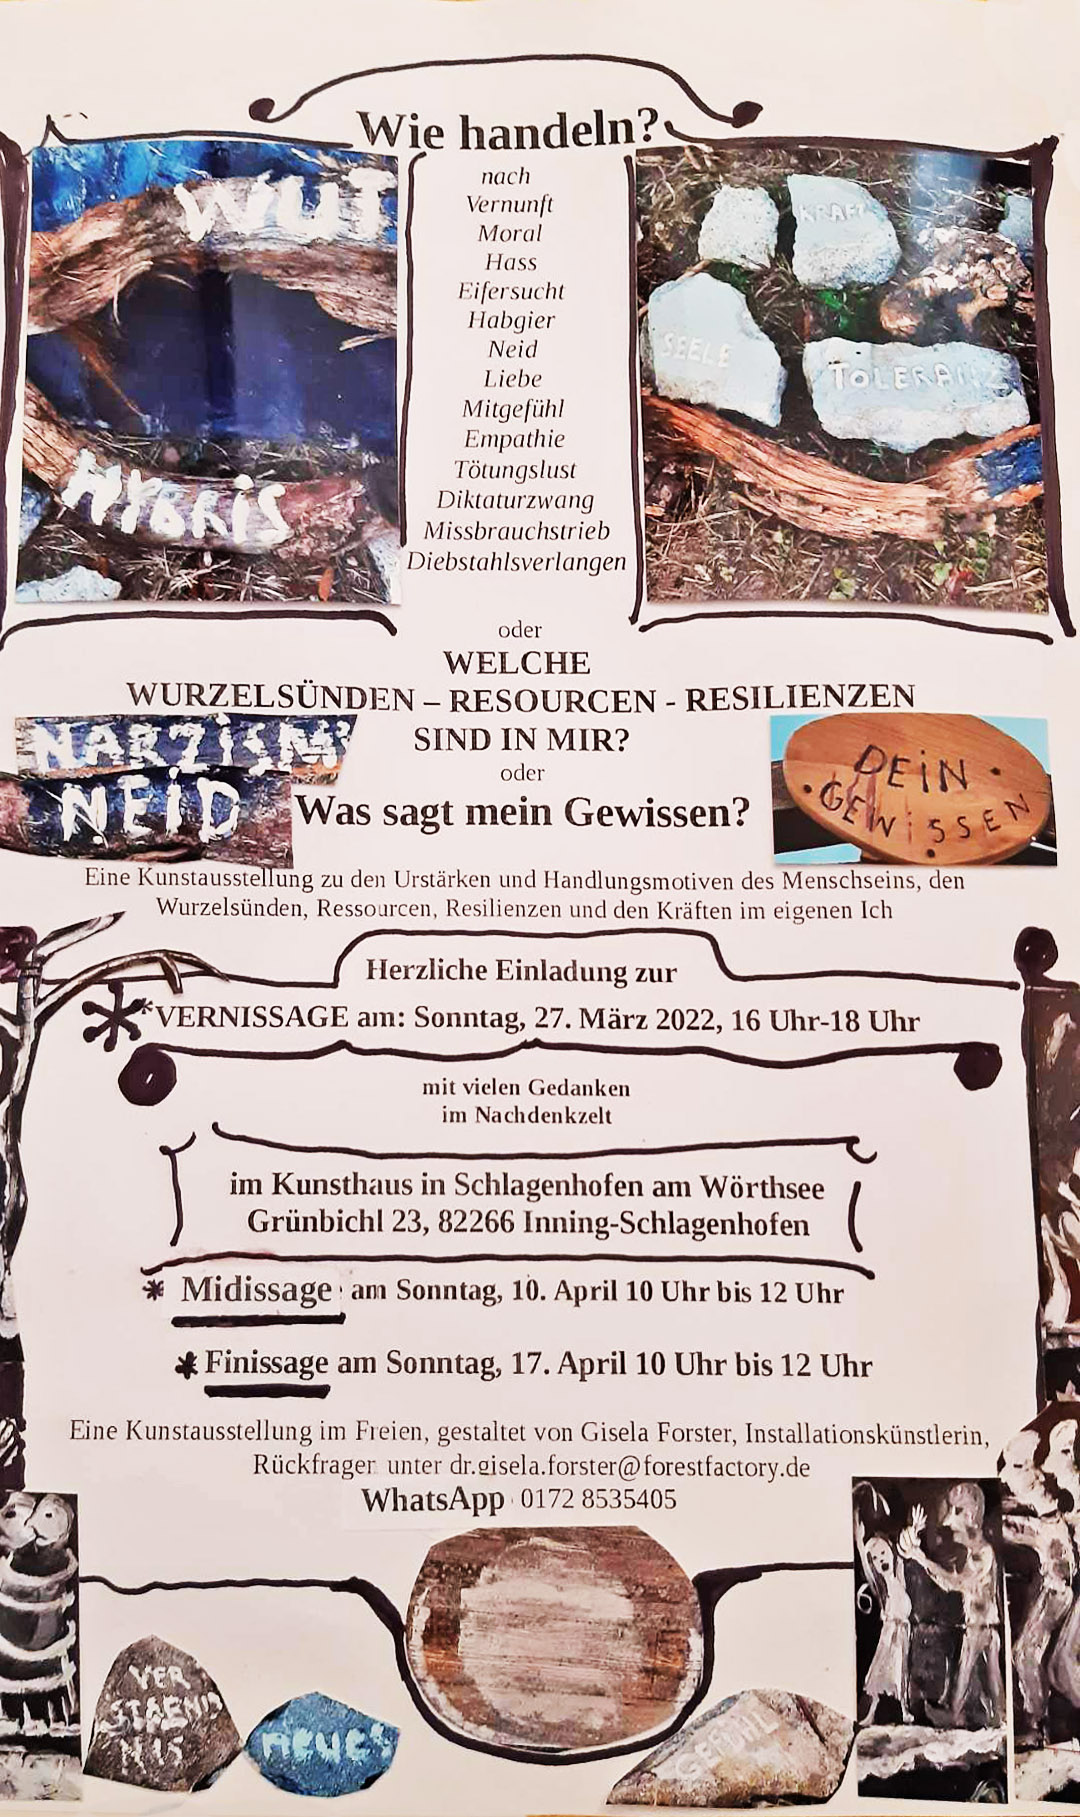 Wie handeln?
WUT
HYBRIS
nach
Vernunft
Moral
Hass
Eifersucht
Habgier
Neid
Liebe
Mitgefühl
Empathie
Tötungslust
Diktaturzwang
Missbrauchstrieb
Diebstahlsverlangen
KRAFT
SEELE
TOLERANZ
oder
WELCHE
WURZELSÜNDEN – RESOURCEN - RESILIENZEN
SIND IN MIR?
oder
Was sagt mein Gewissen?
NARZiSM
NEiD
DEiN
GEWiSSEN
Eine Kunstausstellung zu den Urstärken und Handlungsmotiven des Menschseins, den
Wurzelsünden, Ressourcen, Resilienzen und den Kräften im eigenen Ich
Herzliche Einladung zur
*VERNISSAGE am: Sonntag, 27. März 2022, 16 Uhr-18 Uhr
mit vielen Gedanken
im Nachdenkzelt
im Kunsthaus in Schlagenhofen am Wörthsee
Grünbichl 23, 82266 Inning-Schlagenhofen
* Midissage am Sonntag, 10. April 10 Uhr bis 12 Uhr
* Finissage am Sonntag, 17. April 10 Uhr bis 12 Uhr
Eine Kunstausstellung im Freien, gestaltet von Gisela Forster, Installationskünstlerin,
Rückfragen unter dr.gisela.forster@forestfactory.de
WhatsApp 0172 8535405
VER
STAEND
NIS
Neues
GEFÜHL